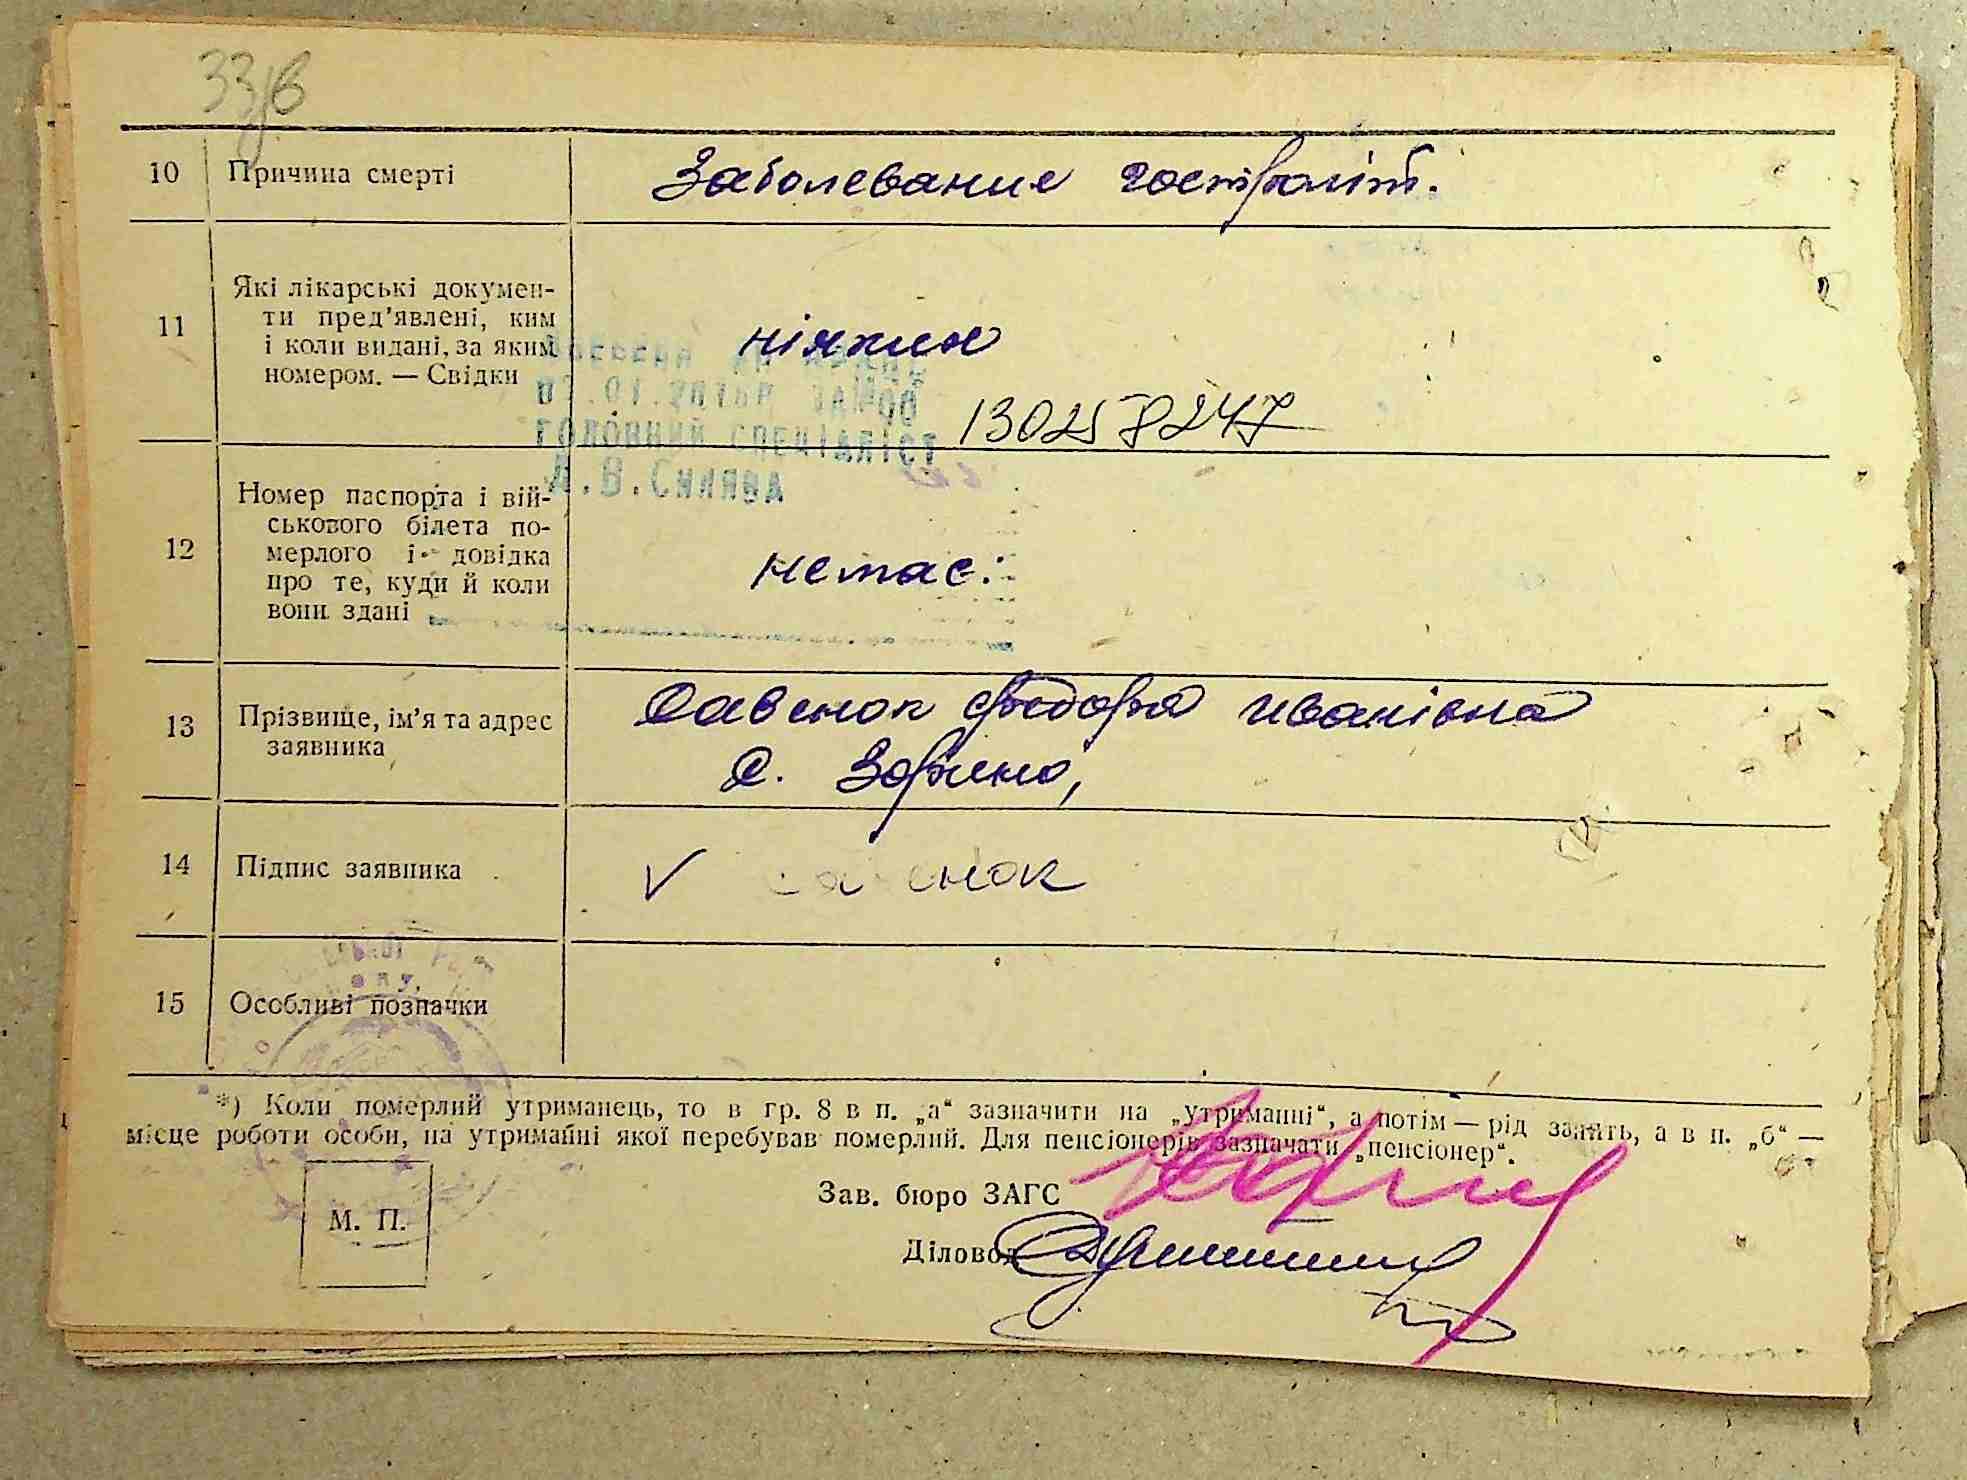 33
10 Причина смерті Заболевание гострит.
11 Які лікарські докумен-
ти пред'явлені, ким
і коли видані, за яким
номером. — Свідки
ніяких
01.2016Р
ГОЛОВНИЙ СПЕЦІАЛІСТ
13025 8247
12 Номер паспорта і вій-
ськового білета по-
мерлого і довідка
про те, куди й коли
вони здані
немає.
13 Прізвище, ім'я та адрес
заявника
Савенок Федора Иванівна
с. Зорино,
14 Підпис заявника V Савенок
15 Особливі позначки
*) Коли померлий утриманець, то в гр. 8 в п. „а“ зазначити на „утриманні“, а потім — рід занять, а в п. „б“ —
місце роботи особи, на утриманні якої перебував померлий. Для пенсіонерів зазначати „пенсіонер“.
Зав. бюро ЗАГС
М. П.
Діловод